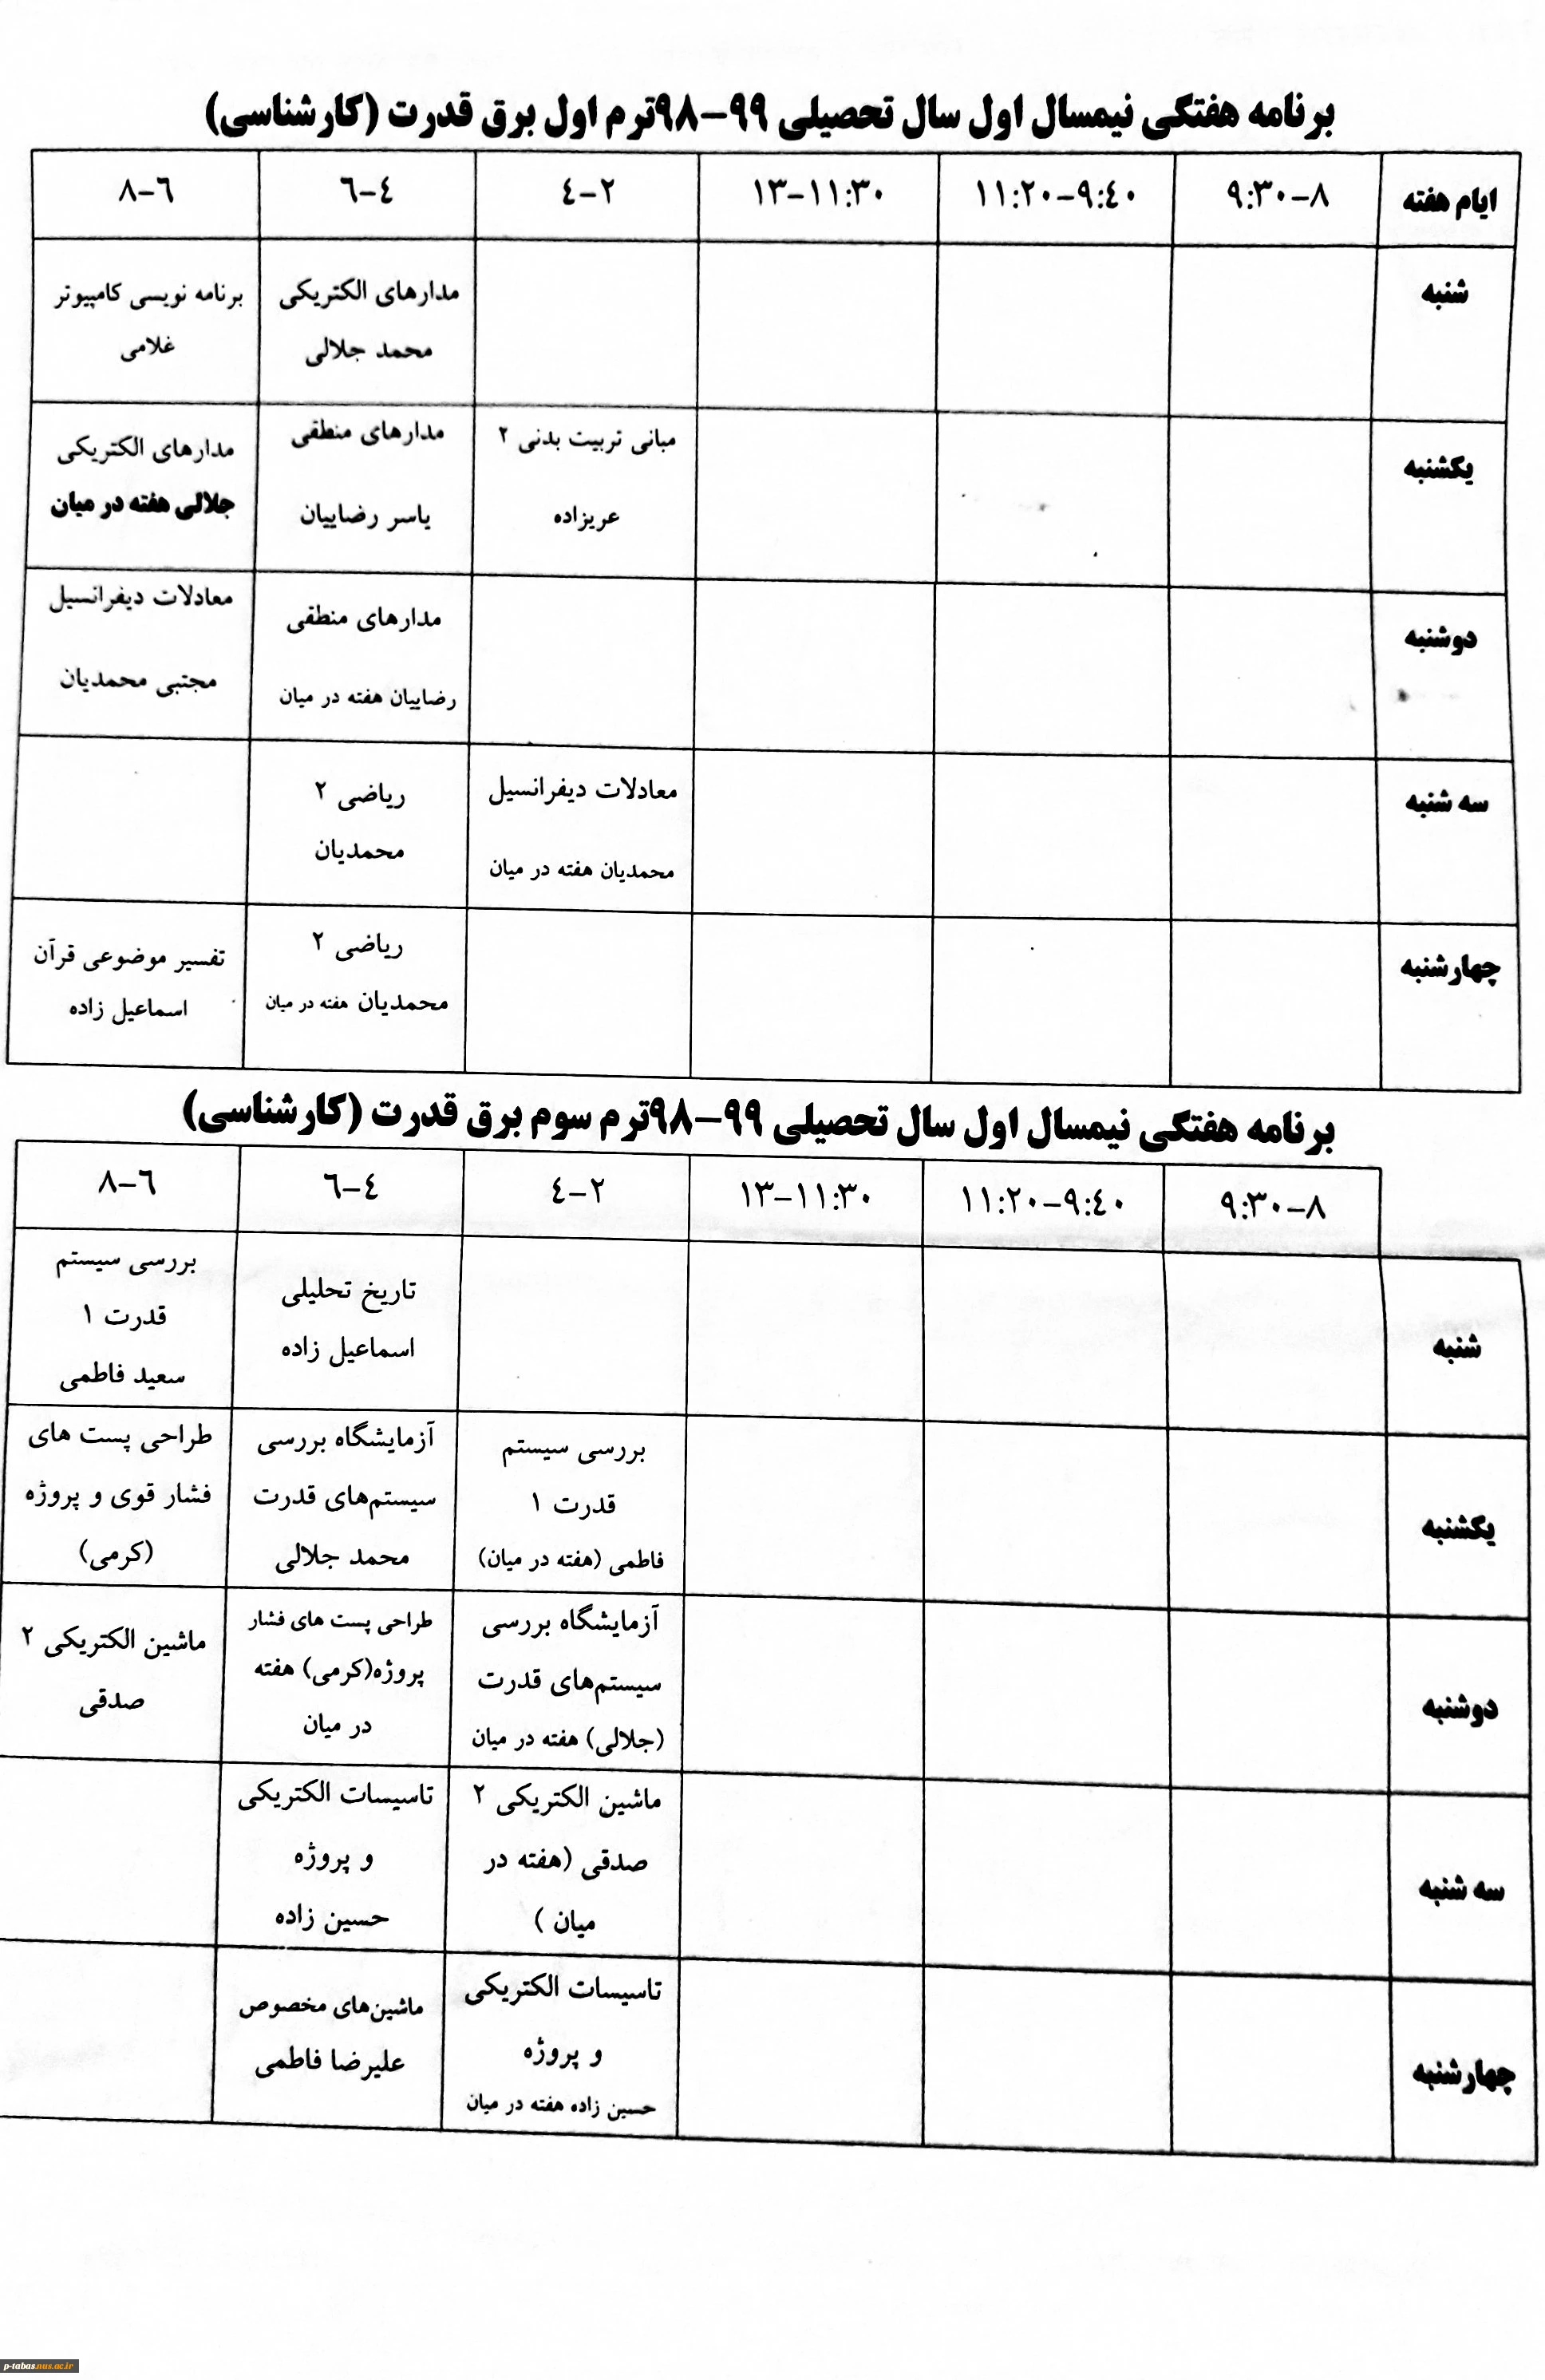 برنامه هفتگی نیمسال اول سال تحصیلی ۹۹-۹۸ترم اول برق قدرت (کارشناسی)
ایام هفته ۸-۹:۳۰ ۹:٤۰-۱۱:۲۰ ۱۱:۳۰-۱۳ ۲-٤ ٤-٦ ٦-۸
شنبه
مدارهای الکتریکی
محمد جلالی
برنامه نویسی کامپیوتر
غلامی
یکشنبه
مبانی تربیت بدنی ۲
عریزاده
مدارهای منطقی
یاسر رضاییان
مدارهای الکتریکی
جلالی هفته در میان
دوشنبه
مدارهای منطقی
رضاییان هفته در میان
معادلات دیفرانسیل
مجتبی محمدیان
سه شنبه
معادلات دیفرانسیل
محمدیان هفته در میان
ریاضی ۲
محمدیان
چهارشنبه
ریاضی ۲
محمدیان هفته در میان
تفسیر موضوعی قرآن
اسماعیل زاده
برنامه هفتگی نیمسال اول سال تحصیلی ۹۹-۹۸ترم سوم برق قدرت (کارشناسی)
۸-۹:۳۰ ۹:٤۰-۱۱:۲۰ ۱۱:۳۰-۱۳ ۲-٤ ٤-٦ ٦-۸
شنبه
تاریخ تحلیلی
اسماعیل زاده
بررسی سیستم
قدرت ۱
سعید فاطمی
یکشنبه
بررسی سیستم
قدرت ۱
فاطمی (هفته در میان)
آزمایشگاه بررسی
سیستم‌های قدرت
محمد جلالی
طراحی پست های
فشار قوی و پروژه
(کرمی)
دوشنبه
آزمایشگاه بررسی
سیستم‌های قدرت
(جلالی) هفته در میان
طراحی پست های فشار
پروژه(کرمی) هفته
در میان
ماشین الکتریکی ۲
صدقی
سه شنبه
ماشین الکتریکی ۲
صدقی (هفته در
میان )
تاسیسات الکتریکی
و پروژه
حسین زاده
چهارشنبه
تاسیسات الکتریکی
و پروژه
حسین زاده هفته در میان
ماشین‌های مخصوص
علیرضا فاطمی
p-tabas.nus.ac.ir